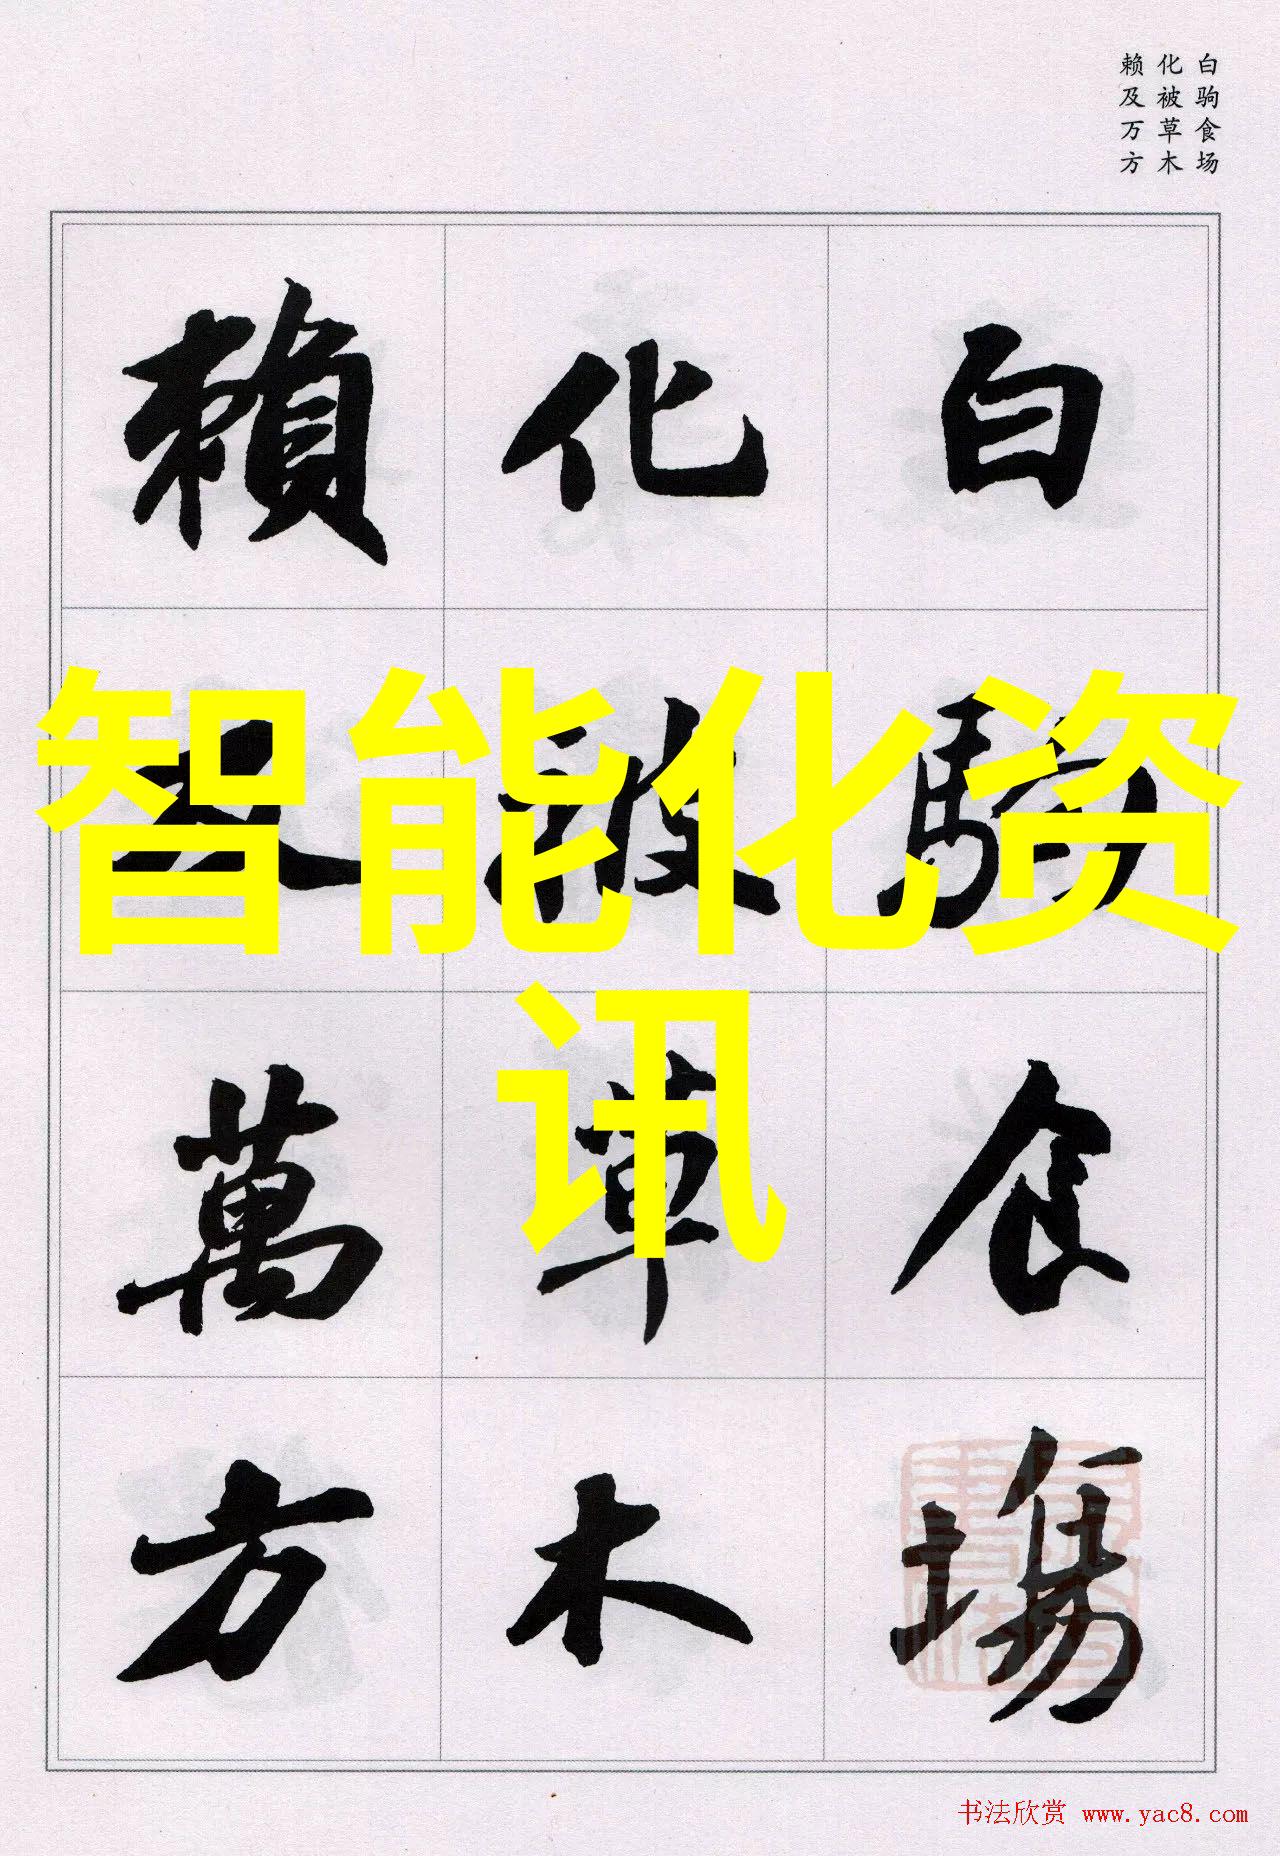 白驹食场
化被草木
赖及万方
白駒食場
化被草木
賴及萬方
智能化资
讯
书法欣赏 www.yac8.com